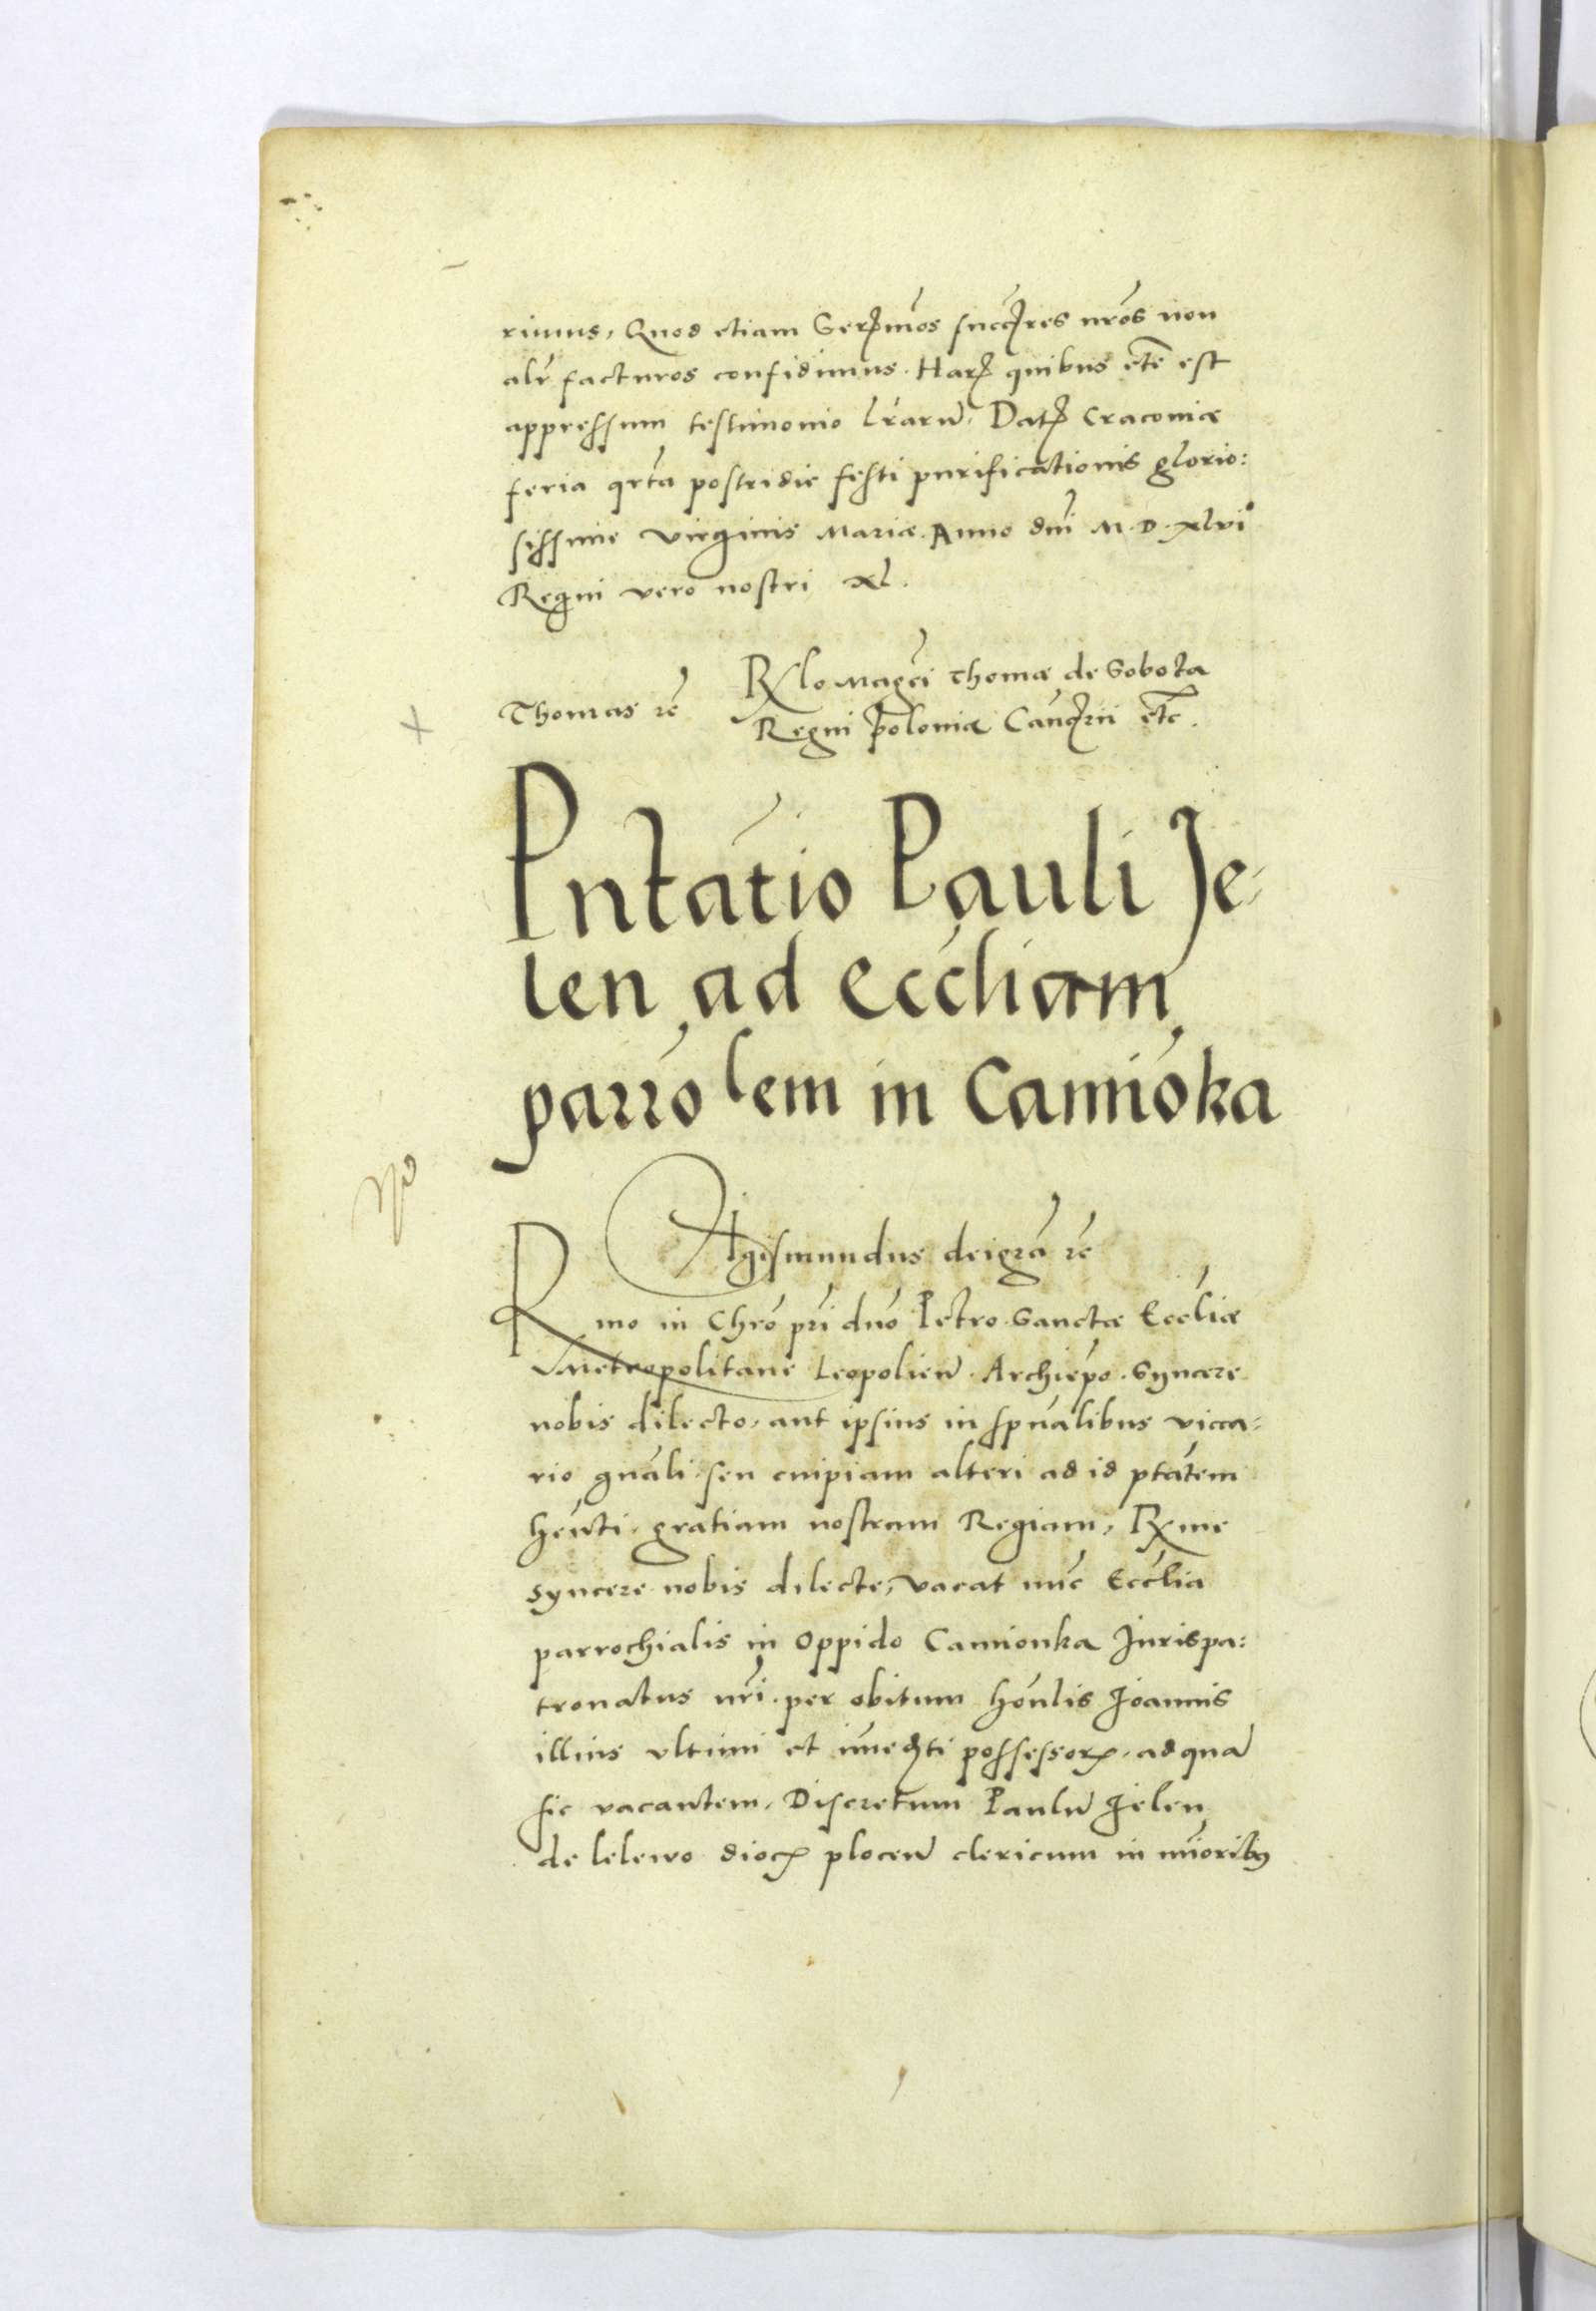 rimus, Quod etiam Serꝫmos succꝫres nros non
alr facturos confidimus. Harꝫ quibus etc est
appressum testimonio lrarum. Datꝫ Craconiæ
feria qrta postridie festi purificationis glorio:
sissime virginis Mariæ. Anno dni M.D.xlvi°
Regni vero nostri xl.
Thomas rc
Rlo Magci Thomæ de Sobota
Regni Poloniæ Canꝫrii etc.
Pntatio Pauli Je-
len ad Eccliam
parrolem in Camionka
Sigismundus dei gra rc
Rmo in Chro pri dno Petro Sanctæ Eccliæ
Metropolitane Leopolien. Archiepo. Syncere
nobis dilecto, aut ipsius in spualibus vicca-
rio gnali seu cuipiam alteri ad id ptatem
henti, gratiam nostram Regiam, Rxme
syncere nobis dilecte, vacat nuc Ecclia
parrochialis in oppido Camionka Jurispa:
tronatus nri. per obitum honlis Joannis
illius ultimi et imeꝫti possessorꝫ, ad qua
sic vacantem, Discretum Paulu Jelen
de lelewo diocꝫ plocen clericum in minoribꝰ